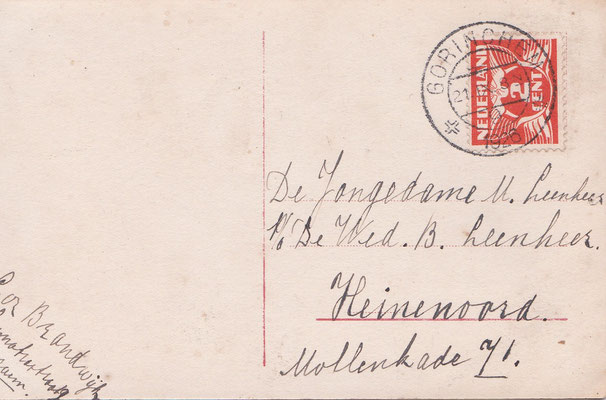 GORINCHEM
1926
NEDERLAND
2
CENT
De Jongedame M. Leenheer
p/o De Wed. B. Leenheer.
Heinenoord.
Mollenkade 71.
Cor Brandwijk